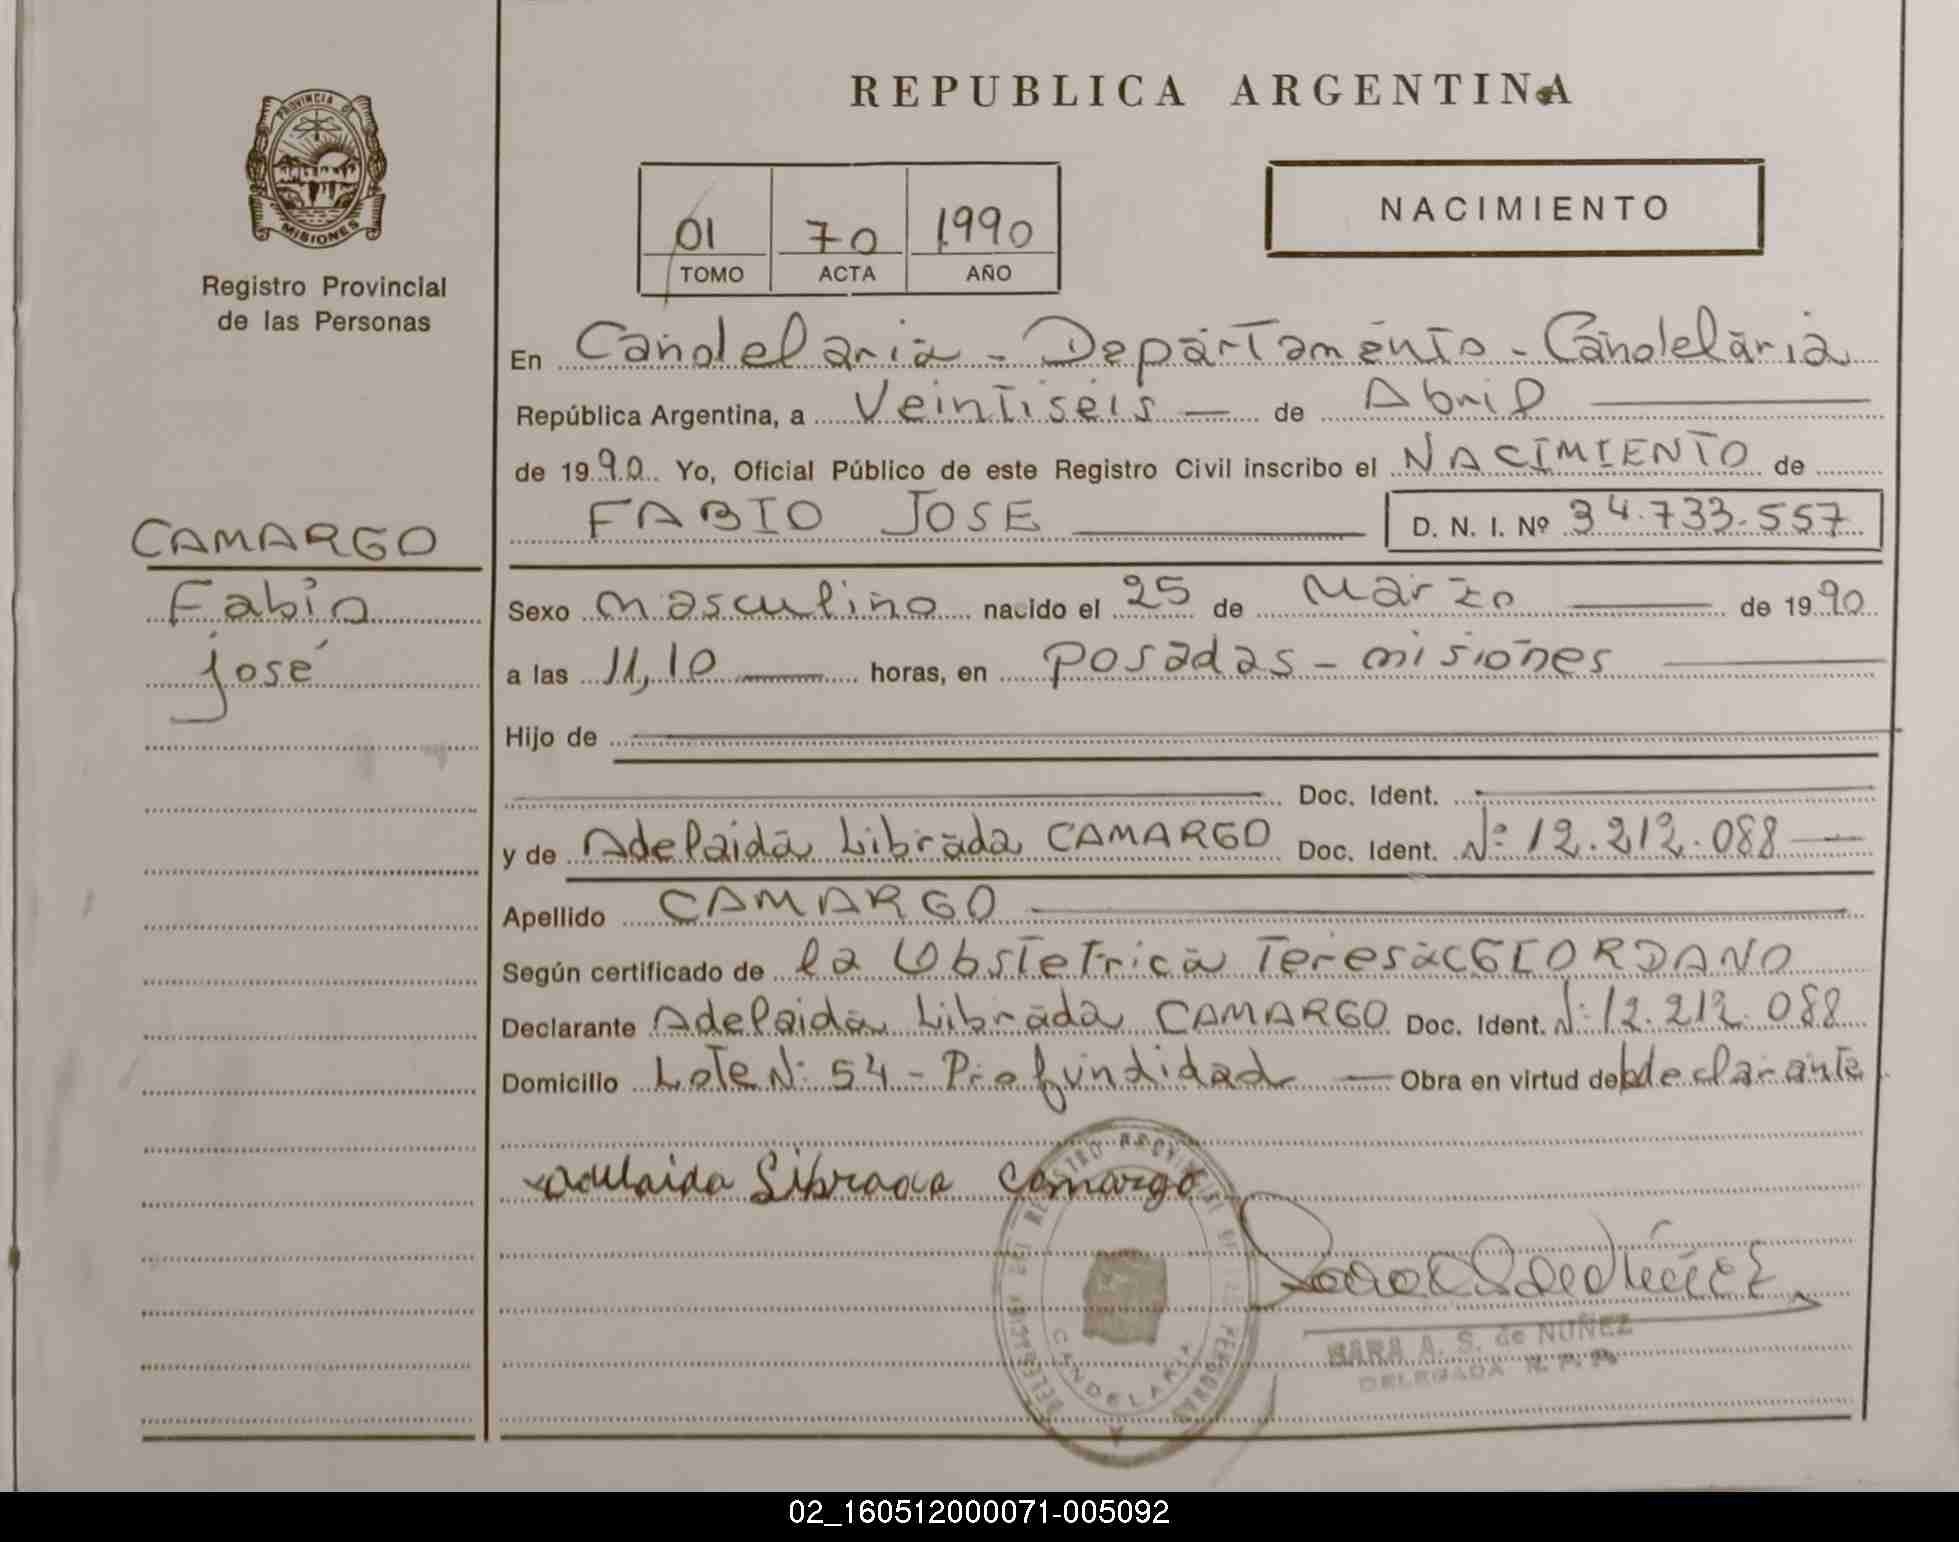 REPUBLICA ARGENTINA
PROVINCIA DE
MISIONES
Registro Provincial
de las Personas
01 70 1990
TOMO ACTA AÑO
NACIMIENTO
En Candelaria - Departamento - Candelaria
República Argentina, a Veintiseis de Abril
de 1990 Yo, Oficial Público de este Registro Civil inscribo el NACIMIENTO de
FABIO JOSE D. N. I. Nº 34.733.557
CAMARGO
Fabio
José
Sexo masculino nacido el 25 de Marzo de 1990
a las 11,10 horas, en Posadas - misiones
Hijo de
Doc. Ident.
y de Adelaida Librada CAMARGO Doc. Ident. Nº 12.212.088
Apellido CAMARGO
Según certificado de la Obstetrica Teresa GIORDANO
Declarante Adelaida Librada CAMARGO Doc. Ident. Nº 12.212.088
Domicilio Lote Nº 54 - Profundidad Obra en virtud de declarante
Adelaida Librada Camargo
REGISTRO PROVINCIAL DE LAS PERSONAS
CANDELARIA
SARA A. S. de NUÑEZ
DELEGADA R. P. P.
02_160512000071-005092